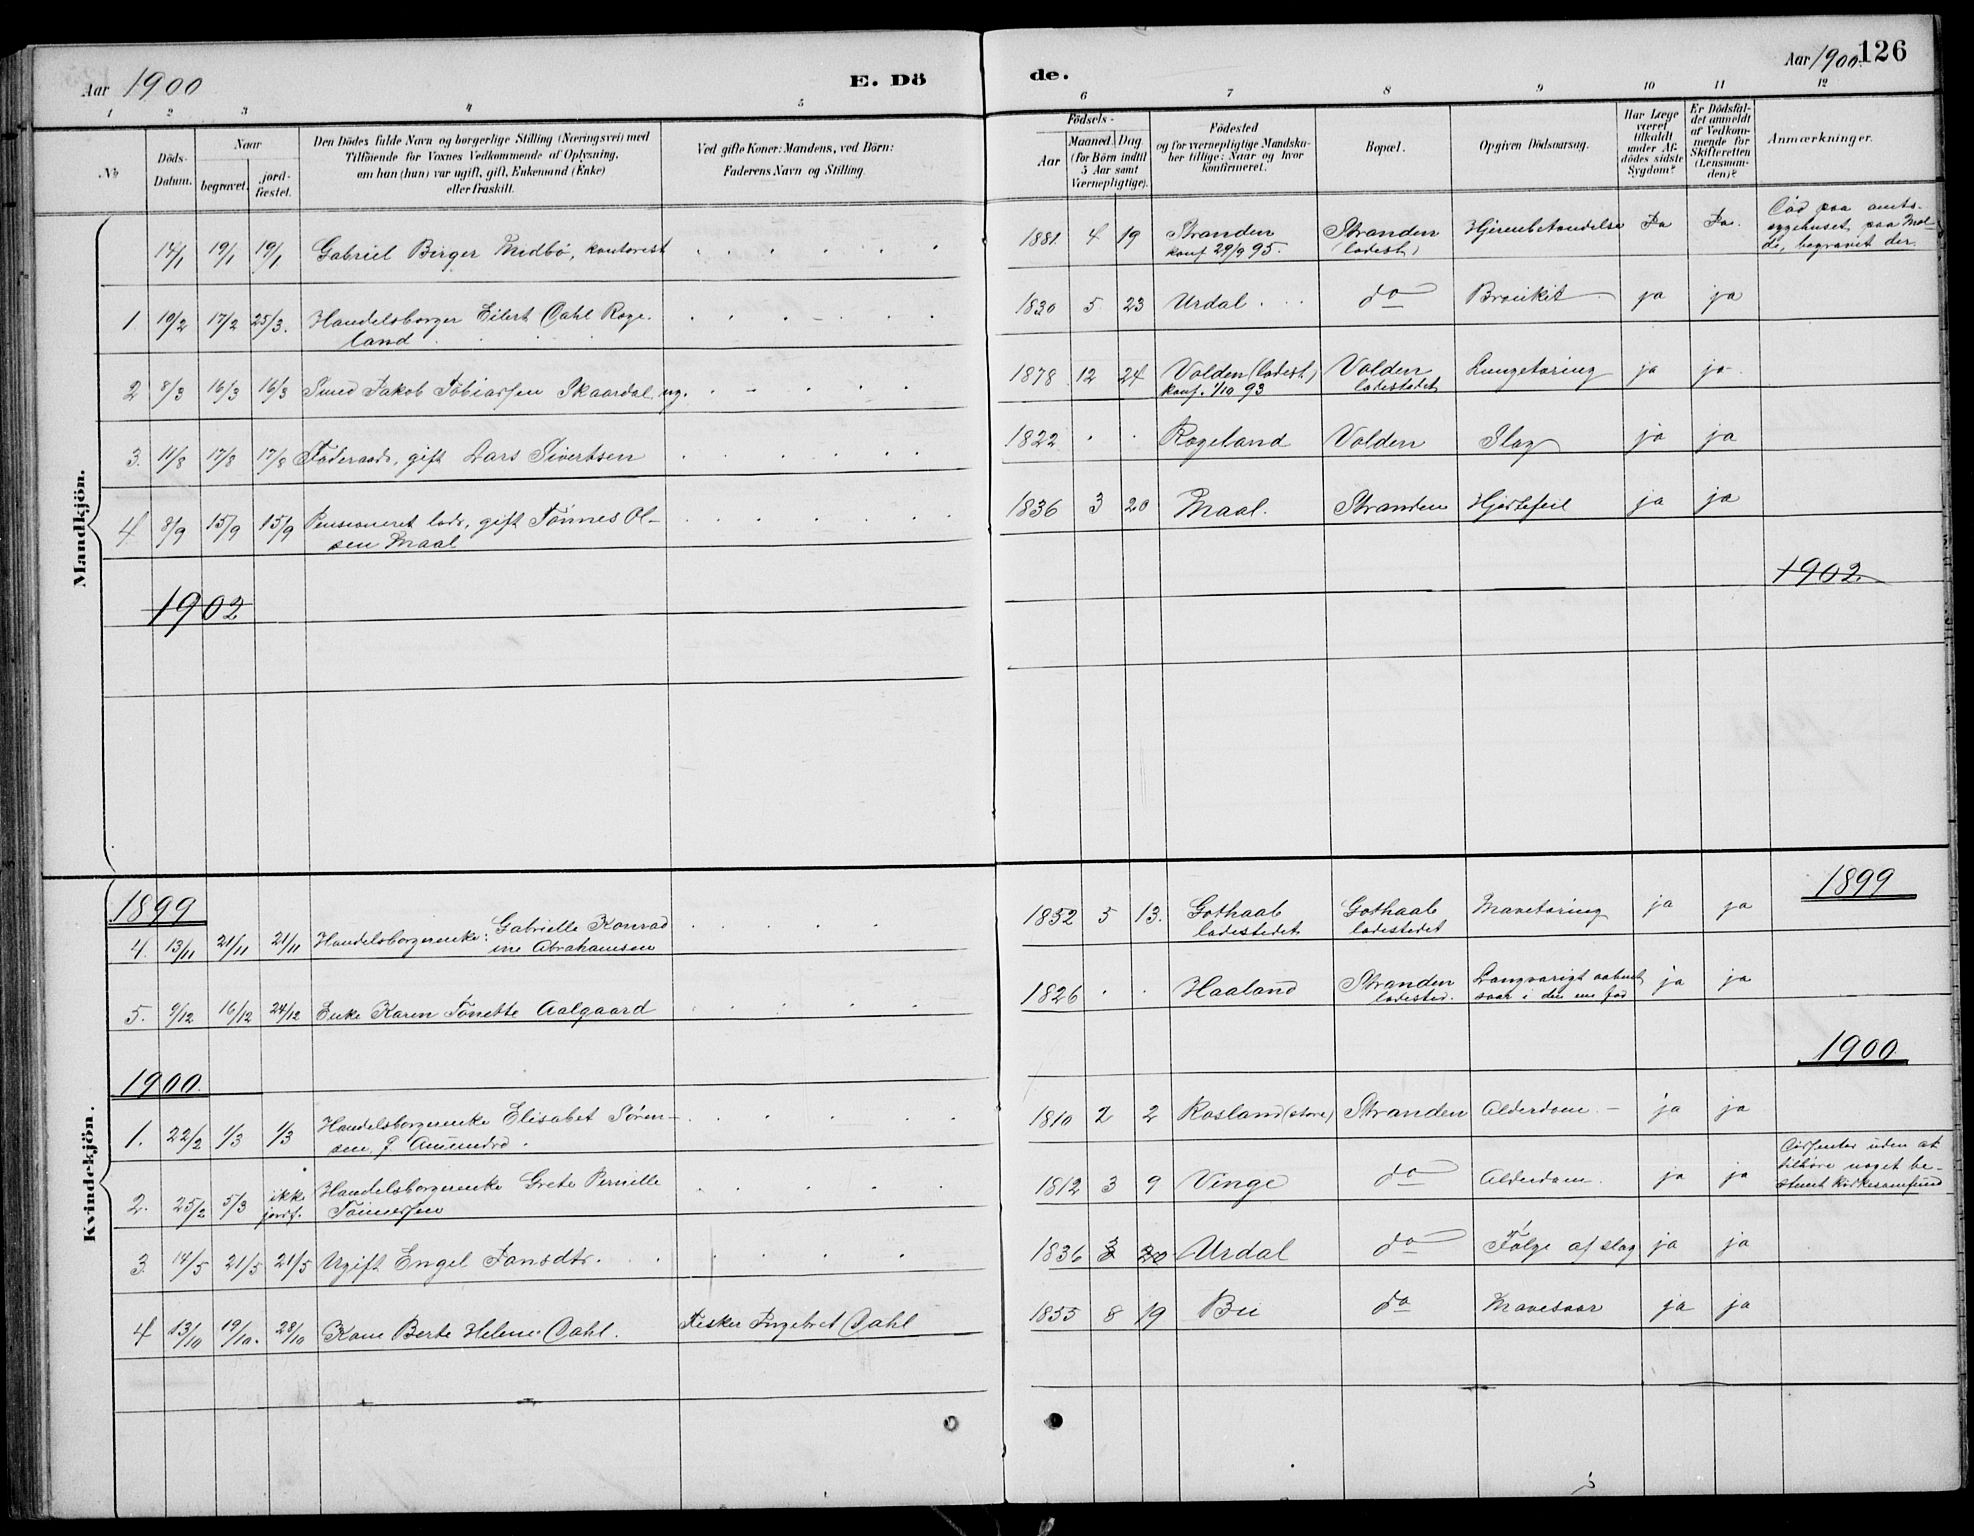 Aar 1900 E. Dö
de. Aar 1900. 126
1 2 3 4 5
6 7 8 9 10 11 12
№
Döds-
Datum.
Naar
begravet.
jord-
fæstet.
Den Dödes fulde Navn og borgerlige Stilling (Næringsvei) med
Tilföiende for Voxnes Vedkommende af Oplysning,
om han (hun) var ugift, gift, Enkemand (Enke)
eller fraskilt.
Ved gifte Koner: Mandens, ved Börn:
Faderens Navn og Stilling.
Födsels-
Aar
Maaned. Dag
(for Börn indtil
5 Aar samt
Værnepligtige).
Födested
og for værnepligtige Mandska-
ber tillige: Naar og hvor
konfirmeret.
Bopæl.
Opgiven Dödsaarsag.
Har Læge
været
tilkaldt
under Af-
dödes sidste
Sygdom?
Er Dödsfal-
det anmeldt
af Vedkom-
mende for
Skifteretten
(Lensman-
den)?
Anmærkninger.
Mandkjön.
14/1 19/1 19/1 Gabriel Birger Midbö, kontorist
1881 4 19 Stranden
konf 29/9 95.
Stranden
(ladest)
Hjernebetændelse Ja Ja.
Död paa amts-
sygehuset paa Mol-
de, begravet der.
1 10/2 17/2 25/3. Handelsborger Eilert Dahl Roge-
land
1830 5 23 Urdal do Bronkit ja ja
2 8/3 16/3 16/3 Smed Jakob Tobiassen Skaardal, ug.
1878 12 24 Valden (ladest)
konf. 1/10 93
Valden
ladestedet
Lungetæring ja ja
3. 11/8 17/8 17/8 Föderaads, gift Lars Sivertsen
1822 Rogeland Valden Slag ja ja
4 8/9 15/9 15/9 Pensioneret lods, gift Tönnes Ol-
sen Maal
1836 3 20 Maal. Stranden Hjertefeil ja ja
1902
1902.
Kvindekjön.
1899
1899
4. 13/11 21/11 21/11 Handelsborgerenke: Gabrielle Konrad
ine Abrahamsen
1852 5 13. Gothaab
ladestedet
Gothaab
ladestedet
Mavetæring ja ja
5. 9/12 16/12 24/12 Enke Karen Tonette Aalgaard
1826 Haaland Stranden
ladested.
Langvarigt aabent
saar i den ene fod ja ja
1900.
1900
1. 22/2 1/3 1/3 Handelsborgerenke Elisabet Sören-
sen f. Amundrö
1810 2 2 Rosland (store) Stranden Alderdom. ja ja
2. 25/2 5/3 ikke
jordf.
Handelsborgerenke Grete Pernille
Tönnessen
1812 3 9 Vinge do Alderdom. ja ja
Dissenter uden at
tilhöre noget be-
stemt Kirkesamfund
3 14/5 21/5 21/5 Ugift Engel Jansdtr.
1836 3 20 Urdal do Fölge af slag ja ja
4 13/10 19/10. 28/10 Kone Berte Helene Dahl. Fisker Ingebret Dahl
1855 8 19 Bu do Mavesaar ja ja